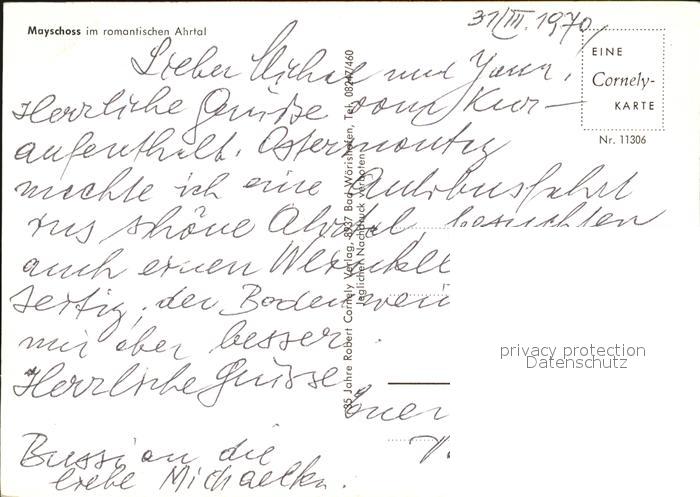 Mayschoss im romantischen Ahrtal
31/III. 1970
EINE
Cornely-
KARTE
Nr. 11306
Lieber Michal und
Herrliche Grüsse vom Kur-
aufenthalt. Ostermontag
machte ich eine Autobusfahrt
ins schöne Ahrtal besuchten
auch einen Weinkell
der Bodenwein
mir aber besser.
Herzliche Grüsse
Euer
Bussi an die
liebe Michaella.
35 Jahre Robert Cornely Verlag, 8937 Bad Wörishofen, Tel. 08247/460
Jeglicher Nachdruck verboten
privacy protection
Datenschutz